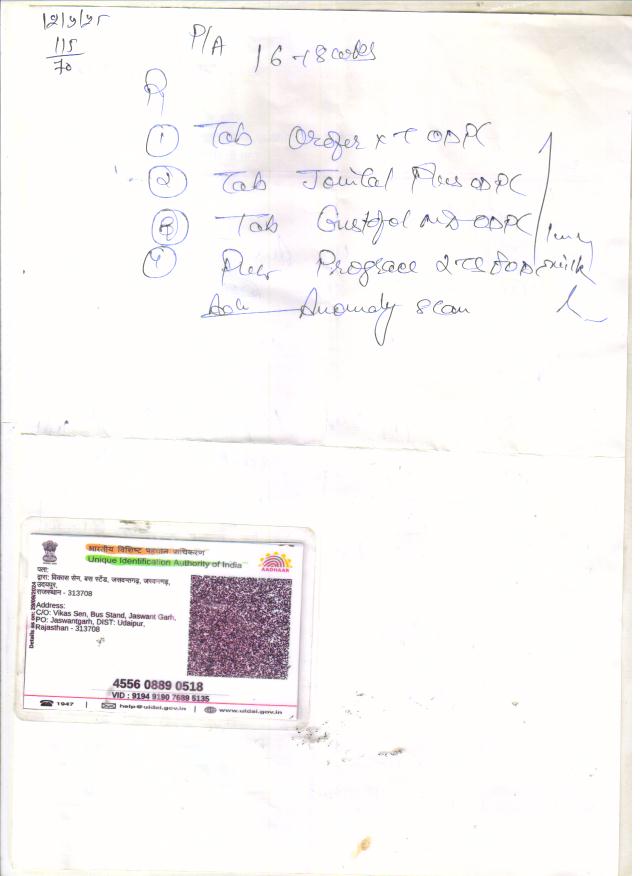 12/9/25
115
70
P/A 16-18 weeks
R
① Tab Orofer XT ODPC
② Tab Jointal Plus ODPC
③ Tab ODPC
④
Adv Anomaly scan
भारतीय विशिष्ट पहचान प्राधिकरण
Unique Identification Authority of India
AADHAAR
पता:
द्वारा: विकास सेन, बस स्टैंड, जसवन्तगढ़, जसवन्तगढ़,
उदयपुर,
राजस्थान - 313708
Address:
C/O: Vikas Sen, Bus Stand, Jaswant Garh,
PO: Jaswantgarh, DIST: Udaipur,
Rajasthan - 313708
4556 0889 0518
VID : 9194 9190 7689 5135
1947 | help@uidai.gov.in | www.uidai.gov.in